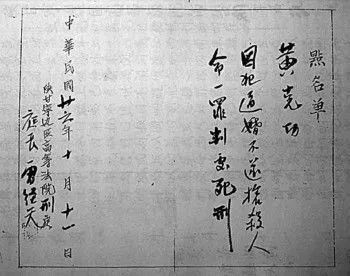 點名单
黄克功
因犯逼婚不遂槍殺人
命一罪判處死刑
中華民國廿六年十月十一日
陕甘寧边區高等法院刑庭
庭長 雷经天